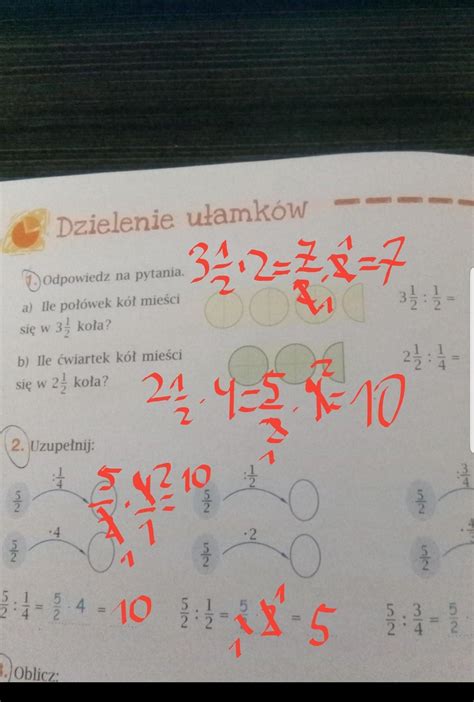 Dzielenie ułamków
1. Odpowiedz na pytania.
3 1/2 · 2 = 7/2 · 2 1/1 = 7
a) Ile połówek kół mieści
się w 3 1/2 koła?
3 1/2 : 1/2 =
b) Ile ćwiartek kół mieści
się w 2 1/2 koła?
2 1/2 : 1/4 =
2 1/2 · 4 = 5/2 1 · 4 2 = 10
2. Uzupełnij:
5/2 : 1/4
5/2 : 1/2
5/2 : 3/4
5/2 1 · 4 2/1 = 10
5/2 · 4
5/2 · 2
5/2
5/2 : 1/4 = 5/2 · 4 = 10
5/2 : 1/2 = 5/2 1 · 2 1 = 5
5/2 : 3/4 = 5/2 ·
Oblicz: